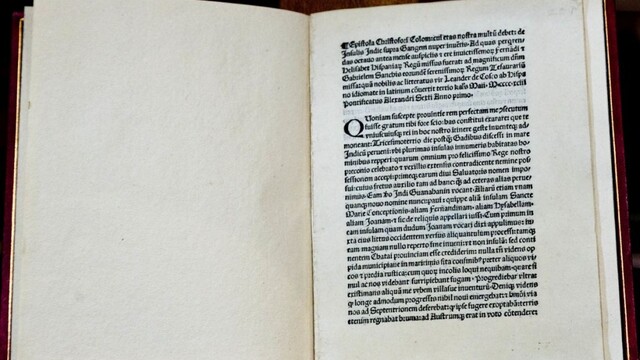 ¶Epistola Christofori Colom: cui etas nostra multũ debet: de
Insulis Indie supra Gangem nuper inuẽtis. Ad quas perqren-
das octauo antea mense auspicijs z ere inuictissimoꝝ Fernãdi z
Helisabet Hispaniaꝝ Regũ missus fuerat: ad magnificum dñm
Gabrielem Sanchis eorundẽ serenissimoꝝ Regum Tesaurariũ
missa: quã nobilis ac litteratus vir Leander de Cosco ab Hispa
no idiomate in latinum cõuertit tertio kalẽs Maij. M.cccc.xciij
Pontificatus Alexandri Sexti Anno primo.
Quoniam suscepte prouintie rem perfectam me ↄsecutum
fuisse gratum tibi fore scio: has constitui exarare: que te
vniuscuiusqꝫ rei in hoc nostro itinere geste inuenteqꝫ ad-
moneant: Tricesimotertio die postqꝫ Gadibus discessi in mare
Indicũ perueni: vbi plurimas insulas innumeris habitatas ho-
minibus repperi: quarum omnium pro felicissimo Rege nostro
preconio celebrato z vexillis extensis contradicente nemine pos-
sessionem accepi: primeqꝫ earum diui Saluatoris nomen impo-
sui: cuius fretus auxilio tam ad hanc: qꝫ ad ceteras alias perue-
nimus. Eam ꝟo Indi Guanahanin vocant. Aliarũ etiam vnam
quanqꝫ nouo nomine nuncupaui: quippe aliã insulam Sancte
Marie Conceptionis. aliam Fernandinam. aliam Hysabellam.
aliam Joanam. z sic de reliquis appellari iussi. Cum primum in
eam insulam quam dudum Joanam vocari dixi appulimus: iu
xta eius littus occidentem versus aliquantulum processi: tamqꝫ
eam magnam nullo reperto fine inueni: vt non insulã: sed conti
nentem Chatai prouinciam esse crediderim: nulla tñ videns op
pida municipiaue in maritimis sita confinibꝰ preter aliquos vi-
cos z predia rustica: cum quoꝝ incolis loqui nequibam. quare si
mul ac nos videbant surripiebant fugam. Progrediebar vltra:
existimans aliquã me vrbem villasue inuenturũ. Deniqꝫ videns
qꝫ longe admodum progressis nihil noui emergebat: z hmõi via
nos ad Septentrionem deferebat: qꝫ ipse fugere exoptabã: terris
etenim regnabat bruma: ad Austrumqꝫ erat in voto cõtendere: